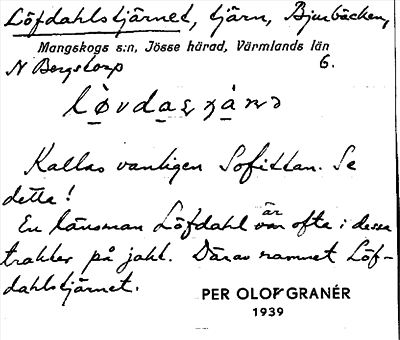 Löfdahlstjärnet, tjärn, Bjurbäcken,
Mangskogs s:n, Jösse härad, Värmlands län
N Bergstorp 6.
Kallas vanligen Sofittan. Se
detta!
En länsman Löfdahl var är ofta i dessa
trakter på jakt. Därav namnet Löf-
dahlstjärnet.
PER OLOF GRANÉR
1939